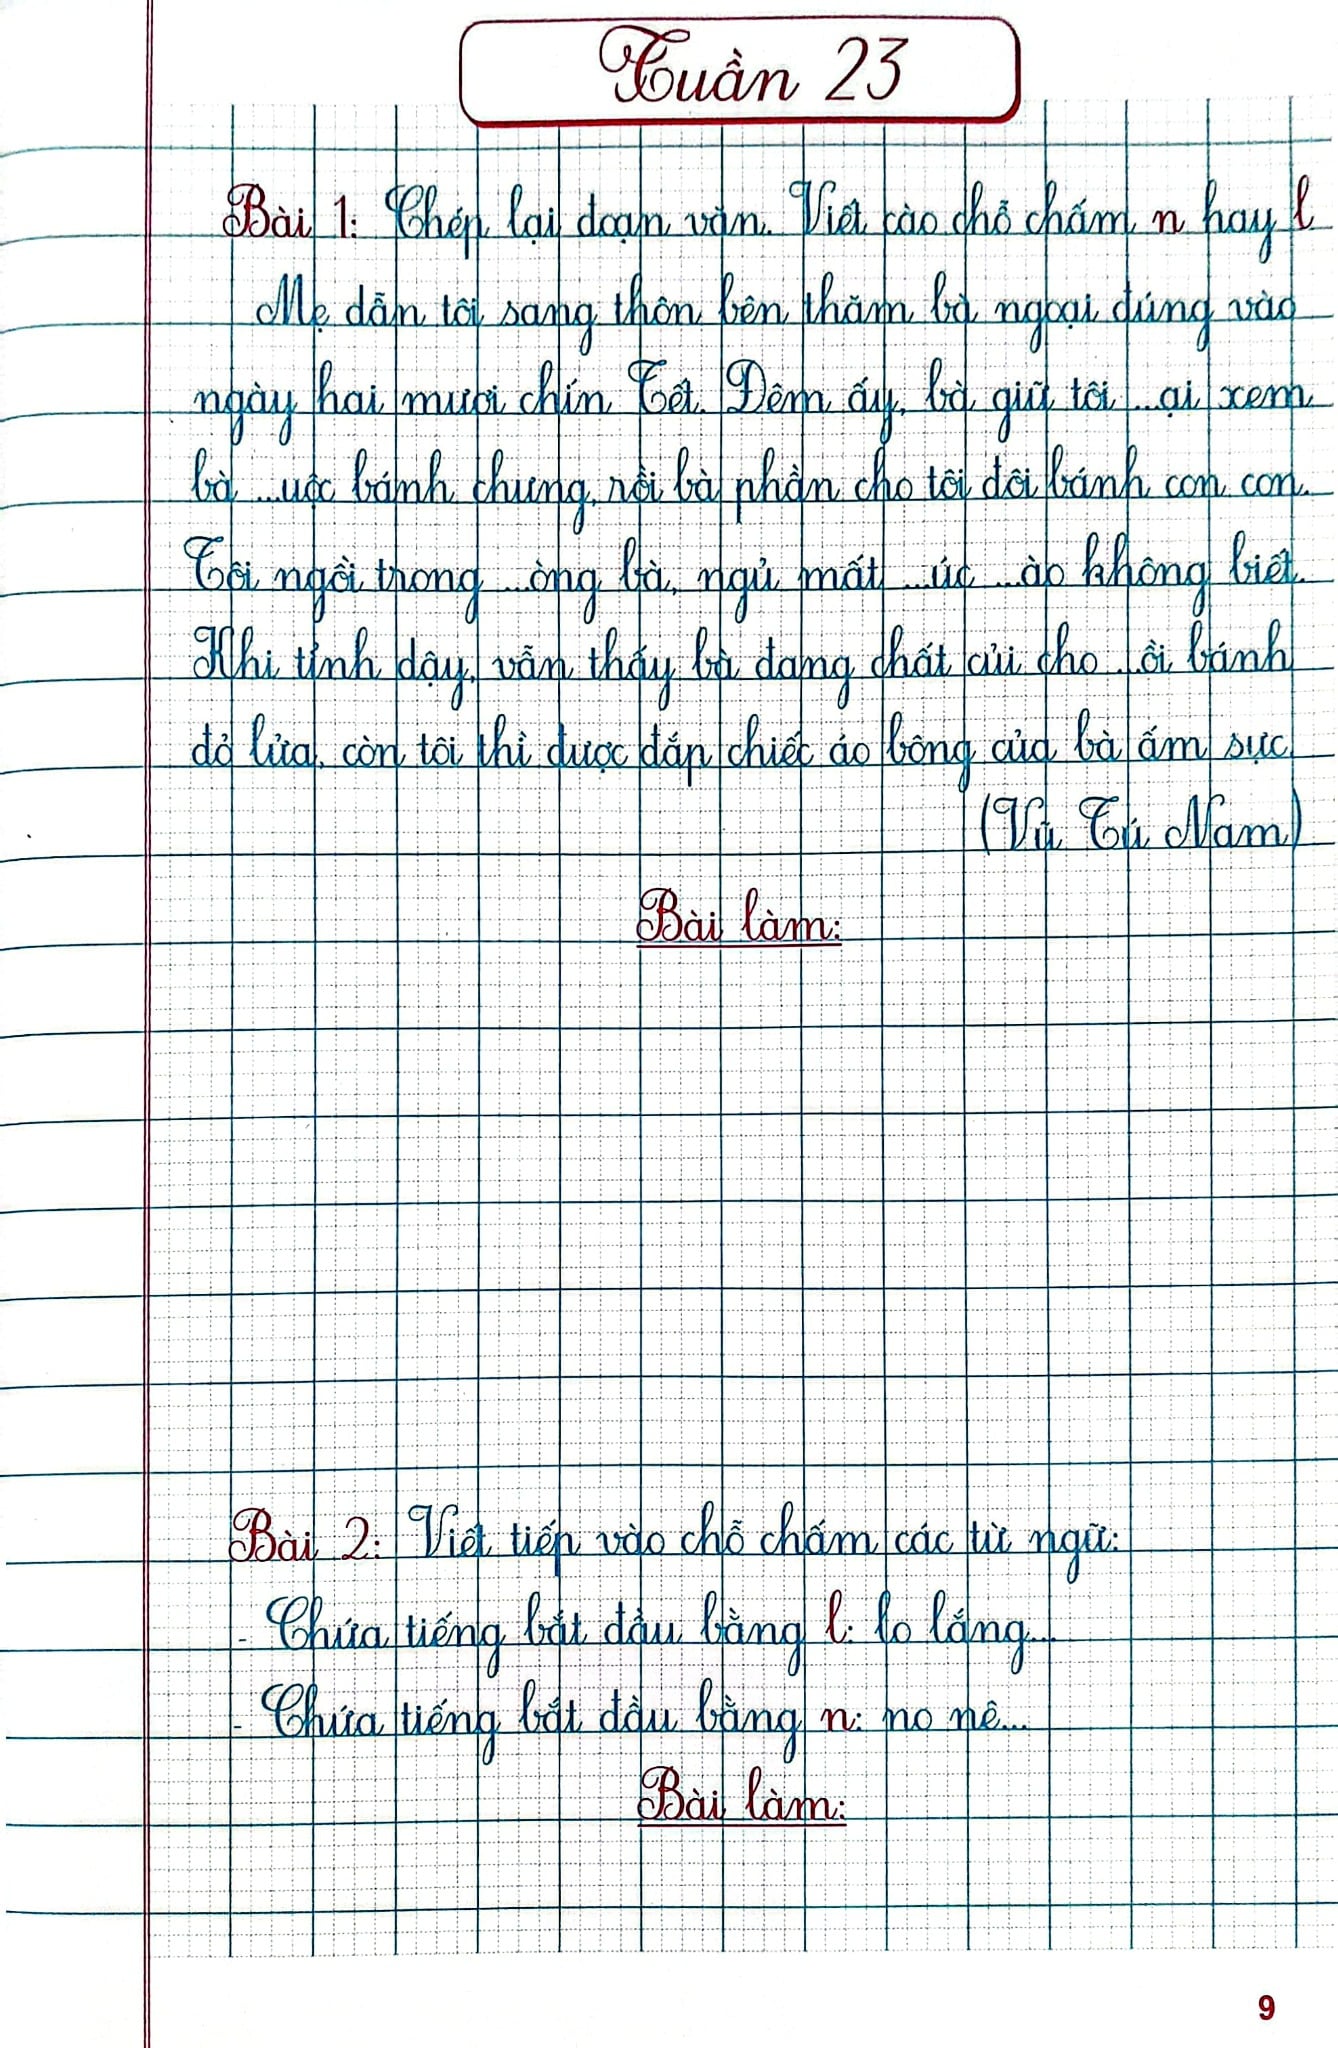 Tuần 23
Bài 1: Chép lại đoạn văn. Viết vào chỗ chấm n hay l
Mẹ dẫn tôi sang thôn bên thăm bà ngoại đúng vào
ngày hai mươi chín Tết. Đêm ấy, bà giữ tôi ...ại xem
bà ...uộc bánh chưng, rồi bà phần cho tôi đôi bánh con con.
Tôi ngồi trong ...òng bà, ngủ mất ...úc ...ào không biết.
Khi tỉnh dậy, vẫn thấy bà đang chất củi cho ...ồi bánh
đỏ lửa, còn tôi thì được đắp chiếc áo bông của bà ấm sực.
(Vũ Tú Nam)
Bài làm:
Bài 2: Viết tiếp vào chỗ chấm các từ ngữ:
- Chứa tiếng bắt đầu bằng l: lo lắng...
- Chứa tiếng bắt đầu bằng n: no nê...
Bài làm:
9